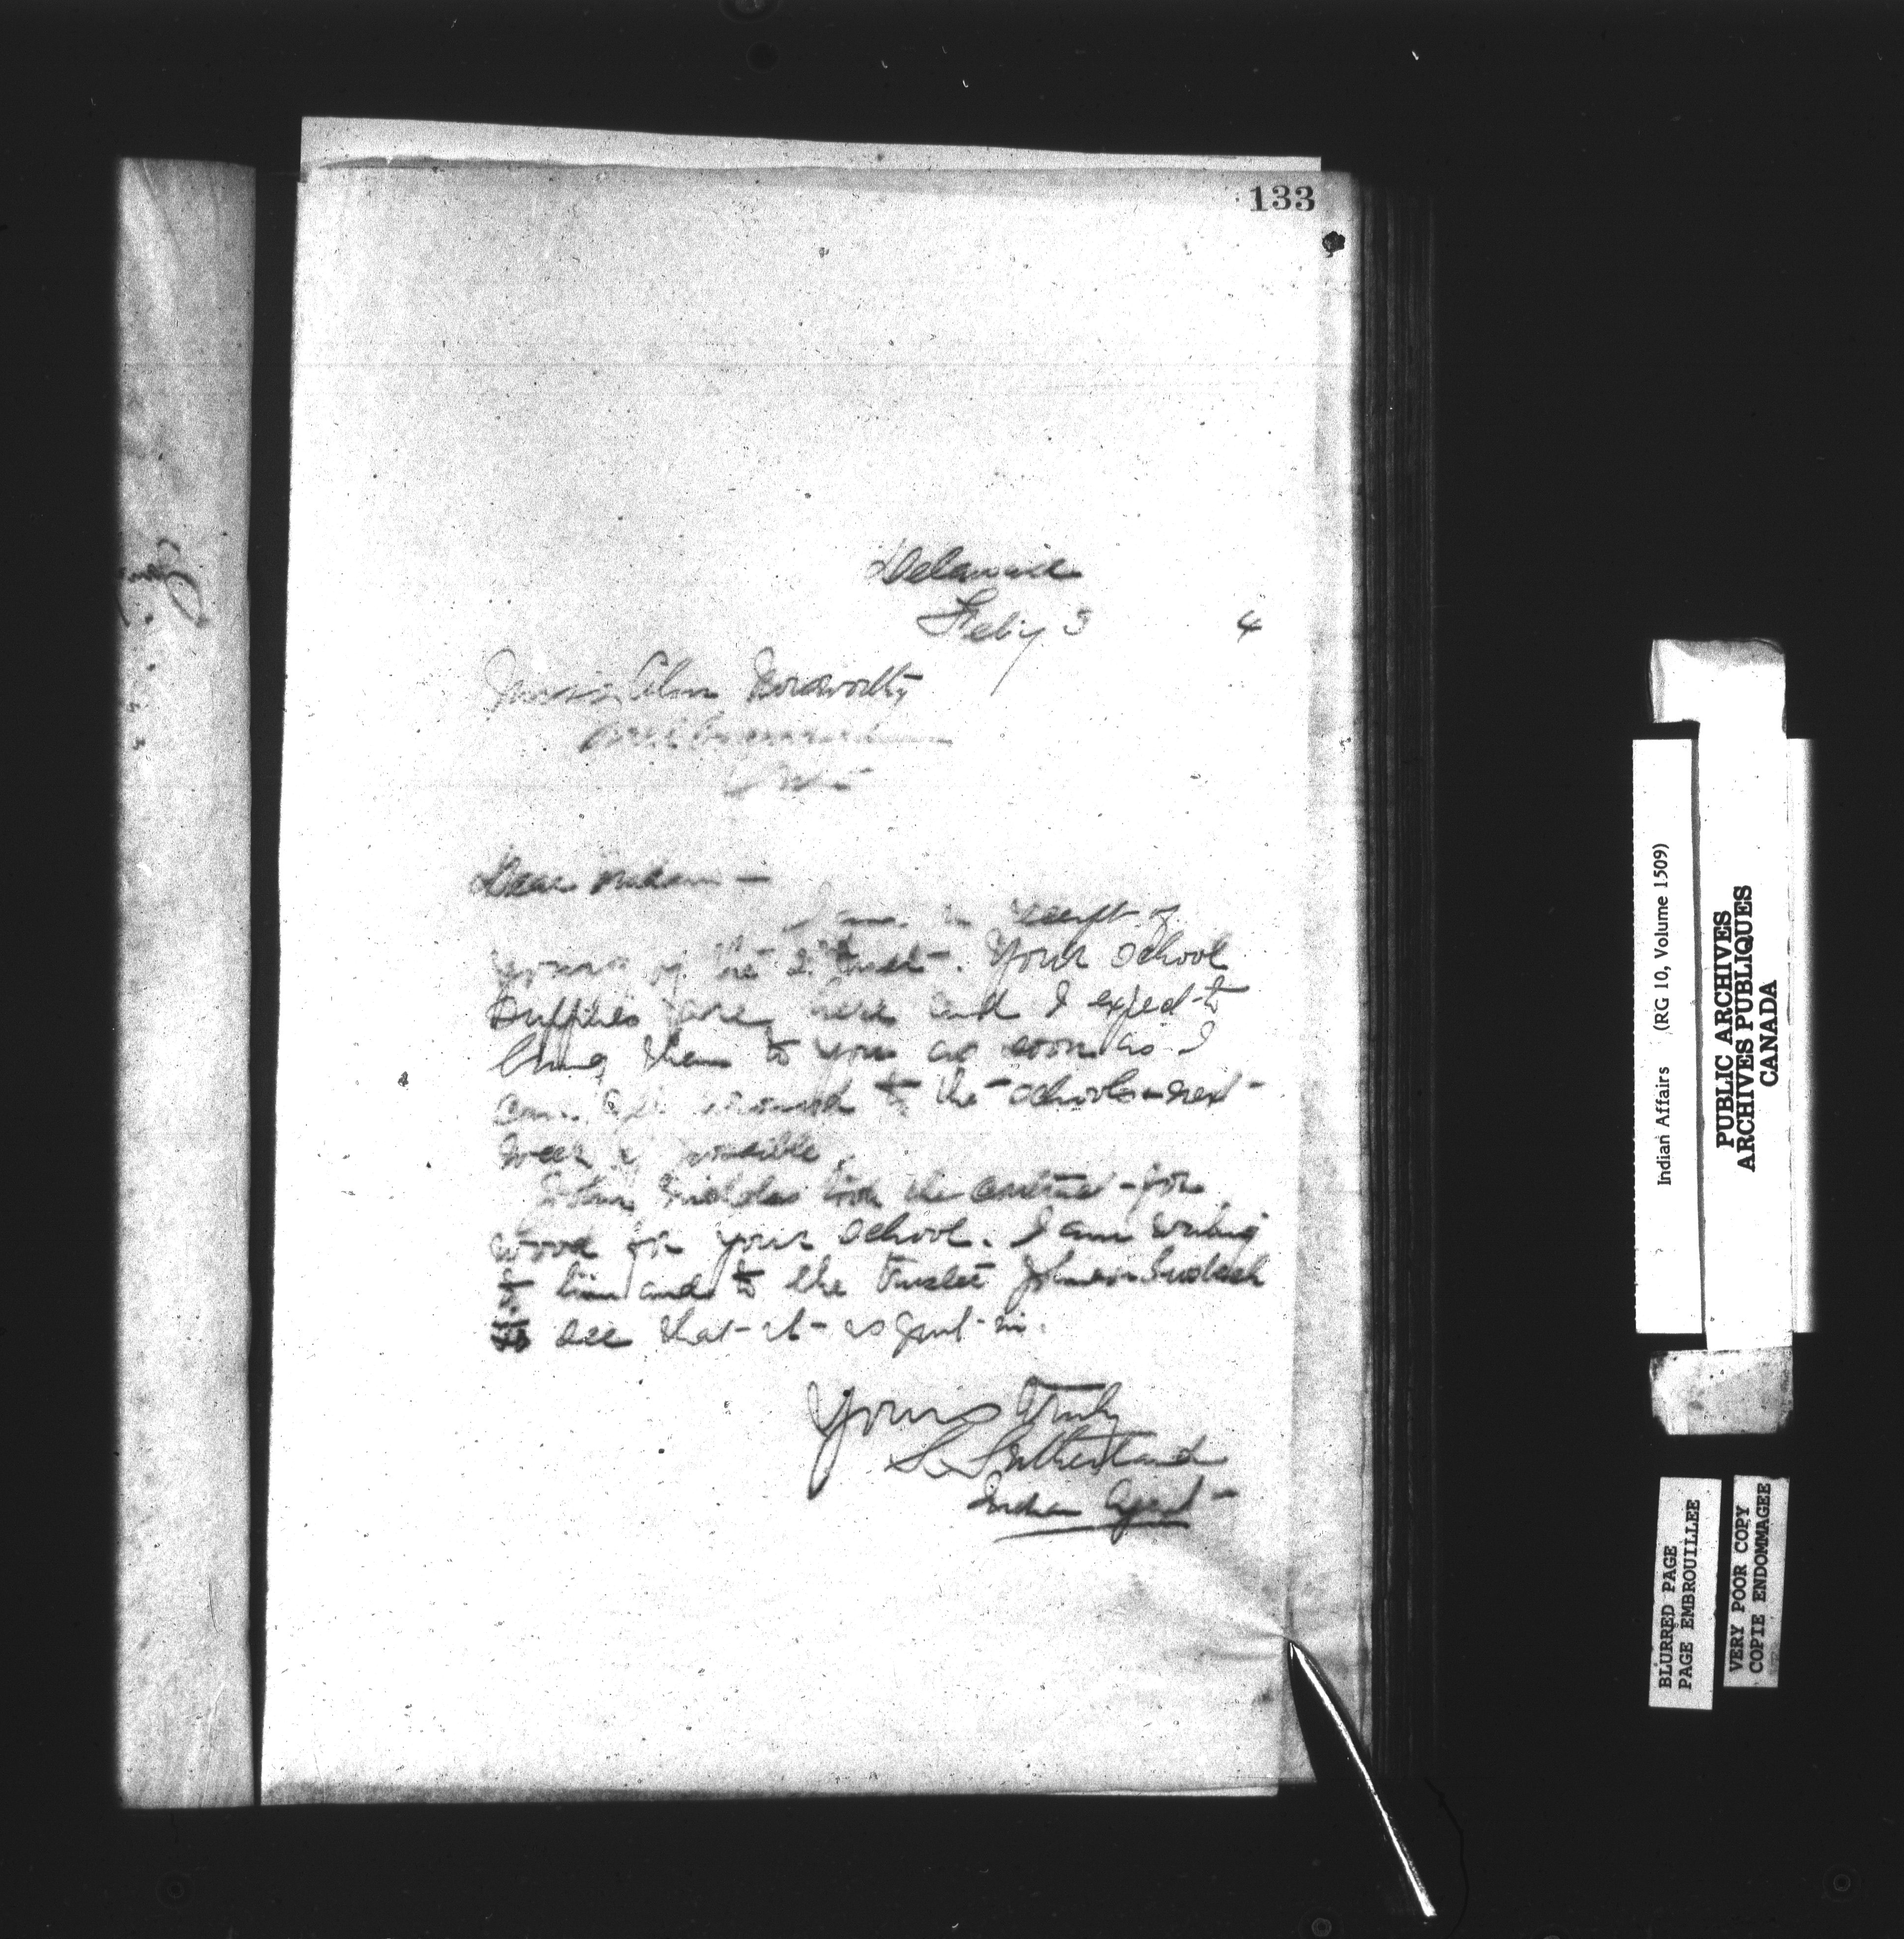 133
Delaware
Feby 3 4
Miss Bosworthy
Dear Madam —
I am in receipt of
yours of the 2nd Inst. Your School
Supplies are here and I expect to
bring them to you as soon as I
can get through to the schools - next
week if possible.
took the contract for
wood for your School. I am writing
to him and to the Trustee
to see that it is put in.
Yours Truly
S. Sutherland
Indian Agent
Indian Affairs (RG 10, Volume 1509)
PUBLIC ARCHIVES
ARCHIVES PUBLIQUES
CANADA
BLURRED PAGE
PAGE EMBROUILLEE
VERY POOR COPY
COPIE ENDOMMAGEE